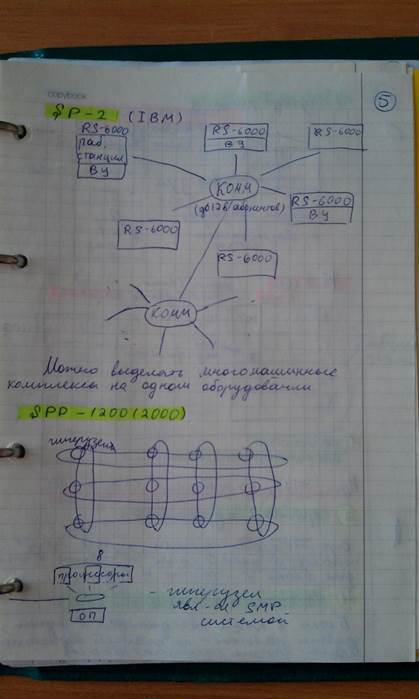 copybook
5
SP-2 (IBM)
RS-6000
раб.
станция
ВУ
RS-6000
ВУ
RS-6000
КОММ
(до 128 абонентов)
RS-6000
ВУ
RS-6000
RS-6000
КОММ
Можно выделять многомашинные
комплексы на одном оборудовании
SPP-1200 (2000)
гиперузел
8
процессоров
ОП
- гиперузел
явл-ся SMP
системой